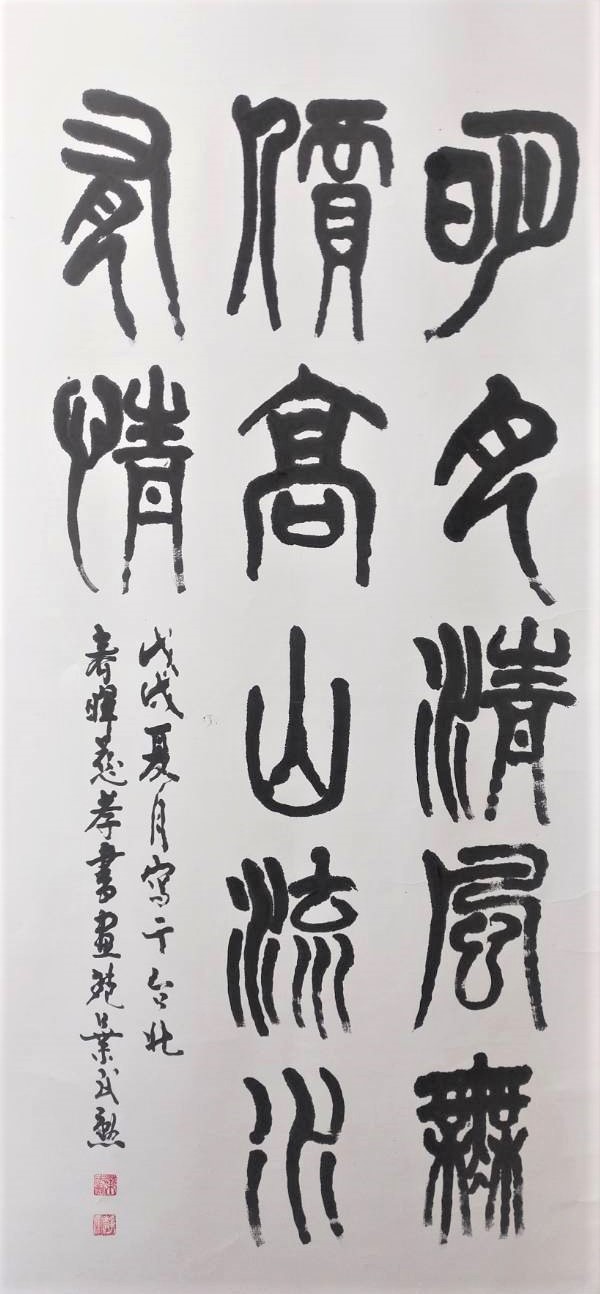 明月清風無
價高山流水
有情
戊戌夏月寫于台北
春暉慈孝書畫苑葉武勲